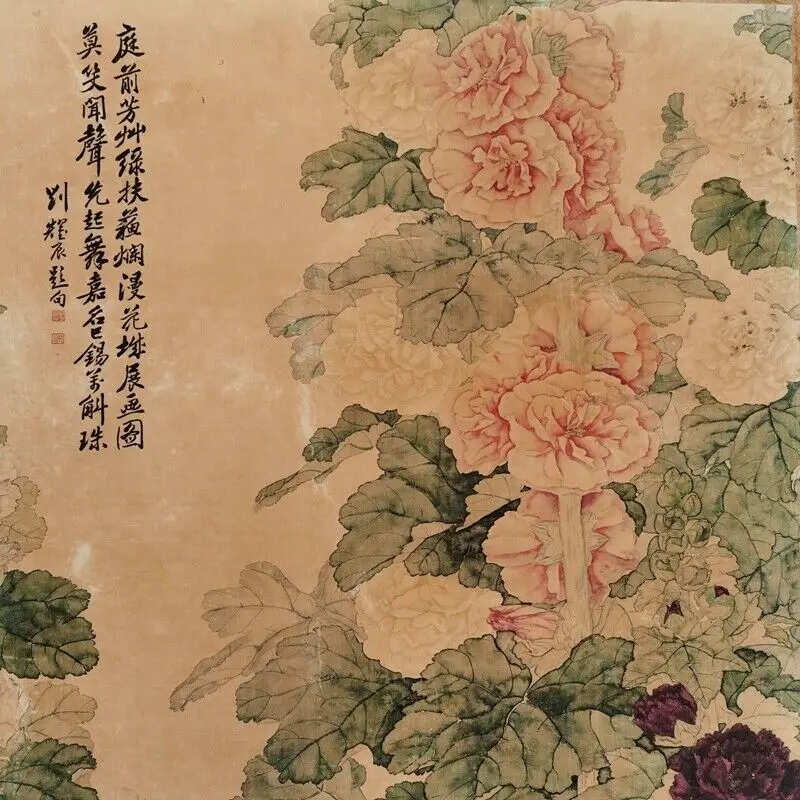 庭前芳艸綠扶蘇爛漫花城展画圖
莫笑聞聲先起舞嘉名已錫萬斛珠
劉耀辰題句